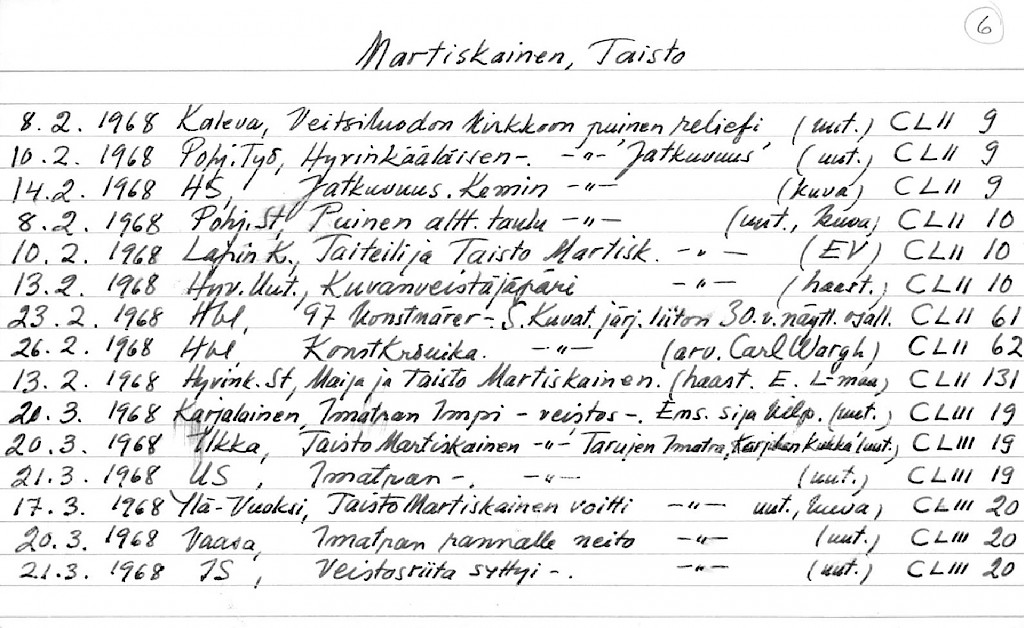 6
Martiskainen, Taisto
8.2. 1968 Kaleva, Veitsiluodon kirkkoon puinen reliefi (uut.) CLII 9
10.2. 1968 Pohj.Työ, Hyvinkääläisen-. -"- 'Jatkuvuus' (uut.) CLII 9
14.2. 1968 HS, Jatkuvuus. Kemin -"- (kuva) CLII 9
8.2. 1968 Pohj.St, Puinen altt.taulu -"- (uut., kuva) CLII 10
10.2. 1968 Lapin K., Taiteilija Taisto Martisk. -"- (EV) CLII 10
13.2. 1968 Hyv.Uut., Kuvanveistäjäpari -"- (haast.) CLII 10
23.2. 1968 Hbl, 97 konstnärer-. S.Kuvat.järj.liiton 30.v.näytt. osall. CLII 61
26.2. 1968 Hbl, Konstkrönika. -"- (arv. Carl Wargh) CLII 62
13.2. 1968 Hyvink.St, Maija ja Taisto Martiskainen. (haast. E. L-maa) CLII 131
20.3. 1968 Karjalainen, Imatran Impi - veistos -. Ens. sija kilp. (uut.) CLIII 19
20.3. 1968 Ilkka, Taisto Martiskainen -"- 'Tarujen Imatra, Karjalan Kukka' (uut.) CLIII 19
21.3. 1968 US, Imatran -. -"- (uut.) CLIII 19
17.3. 1968 Ylä-Vuoksi, Taisto Martiskainen voitti -"- uut., kuva) CLIII 20
20.3. 1968 Vaasa, Imatran rannalle neito -"- (uut.) CLIII 20
21.3. 1968 IS, Veistosriita syttyi -. -"- (uut.) CLIII 20